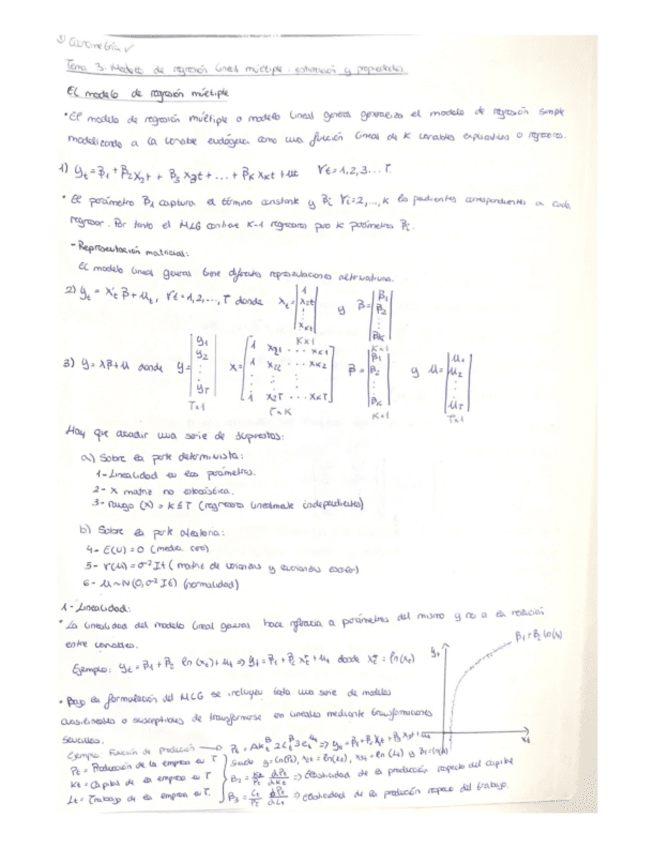 Econometría
Tema 3. Modelo de regresión lineal múltiple: estimación y propiedades
El modelo de regresión múltiple
• El modelo de regresión múltiple o modelo lineal general generaliza el modelo de regresión simple
modelizando a la variable endógena como una función lineal de K variables explicativas o regresores.
1) yt = β1 + β2 x2t + β3 x3t + ... + βK xKt + ut ∀t = 1,2,3...T.
• El parámetro β1 captura el término constante y βi ∀i=2,...,K las pendientes correspondientes a cada
regresor. Por tanto el MLG contiene K-1 regresores pero K parámetros βi.
- Representación matricial:
El modelo lineal general tiene diferentes representaciones alternativas.
2) yt = x't β + ut, ∀t = 1,2,...,T donde xt = |1 x2t ⋮ xKt| K×1 y β = |β1 β2 ⋮ βK| K×1
3) y = xβ + u donde y = |y1 y2 ⋮ yT| T×1 x = [1 x21 ... xK1 1 x22 ... xK2 ⋮ 1 x2T ... xKT] T×K β = |β1 β2 ⋮ βK| K×1 y u = |u1 u2 ⋮ uT| T×1
Hay que añadir una serie de supuestos:
a) Sobre la parte determinista:
1- Linealidad en los parámetros.
2- X matriz no estocástica.
3- rango (x) = K ≤ T (regresores linealmente independientes)
b) Sobre la parte aleatoria:
4- E(U) = 0 (media cero)
5- V(u) = σ² It (matriz de varianzas y covarianzas escalar)
6- u ~ N(0, σ² It) (normalidad)
1- Linealidad:
• La linealidad del modelo lineal general hace referencia a parámetros del mismo y no a la relación
entre variables.
Ejemplo: yt = β1 + β2 ln(xt) + ut ⇒ yt = β1 + β2 x*t + ut donde x*t = ln(xt)
yt
β1 + β2 ln(xt)
xt
• Bajo la formulación del MLG se incluyen toda una serie de modelos
cuasilineales o susceptibles de transformarse en lineales mediante transformaciones
sencillas.
Ejemplo: Función de producción →
Pt = Producción de la empresa en T
Kt = Capital de la empresa en T
Lt = Trabajo de la empresa en T.
β2 = Kt/Pt dPt/dKt ⇒ elasticidad de la producción respecto del capital
β3 = Lt/Pt dPt/dLt ⇒ elasticidad de la producción respecto del trabajo.